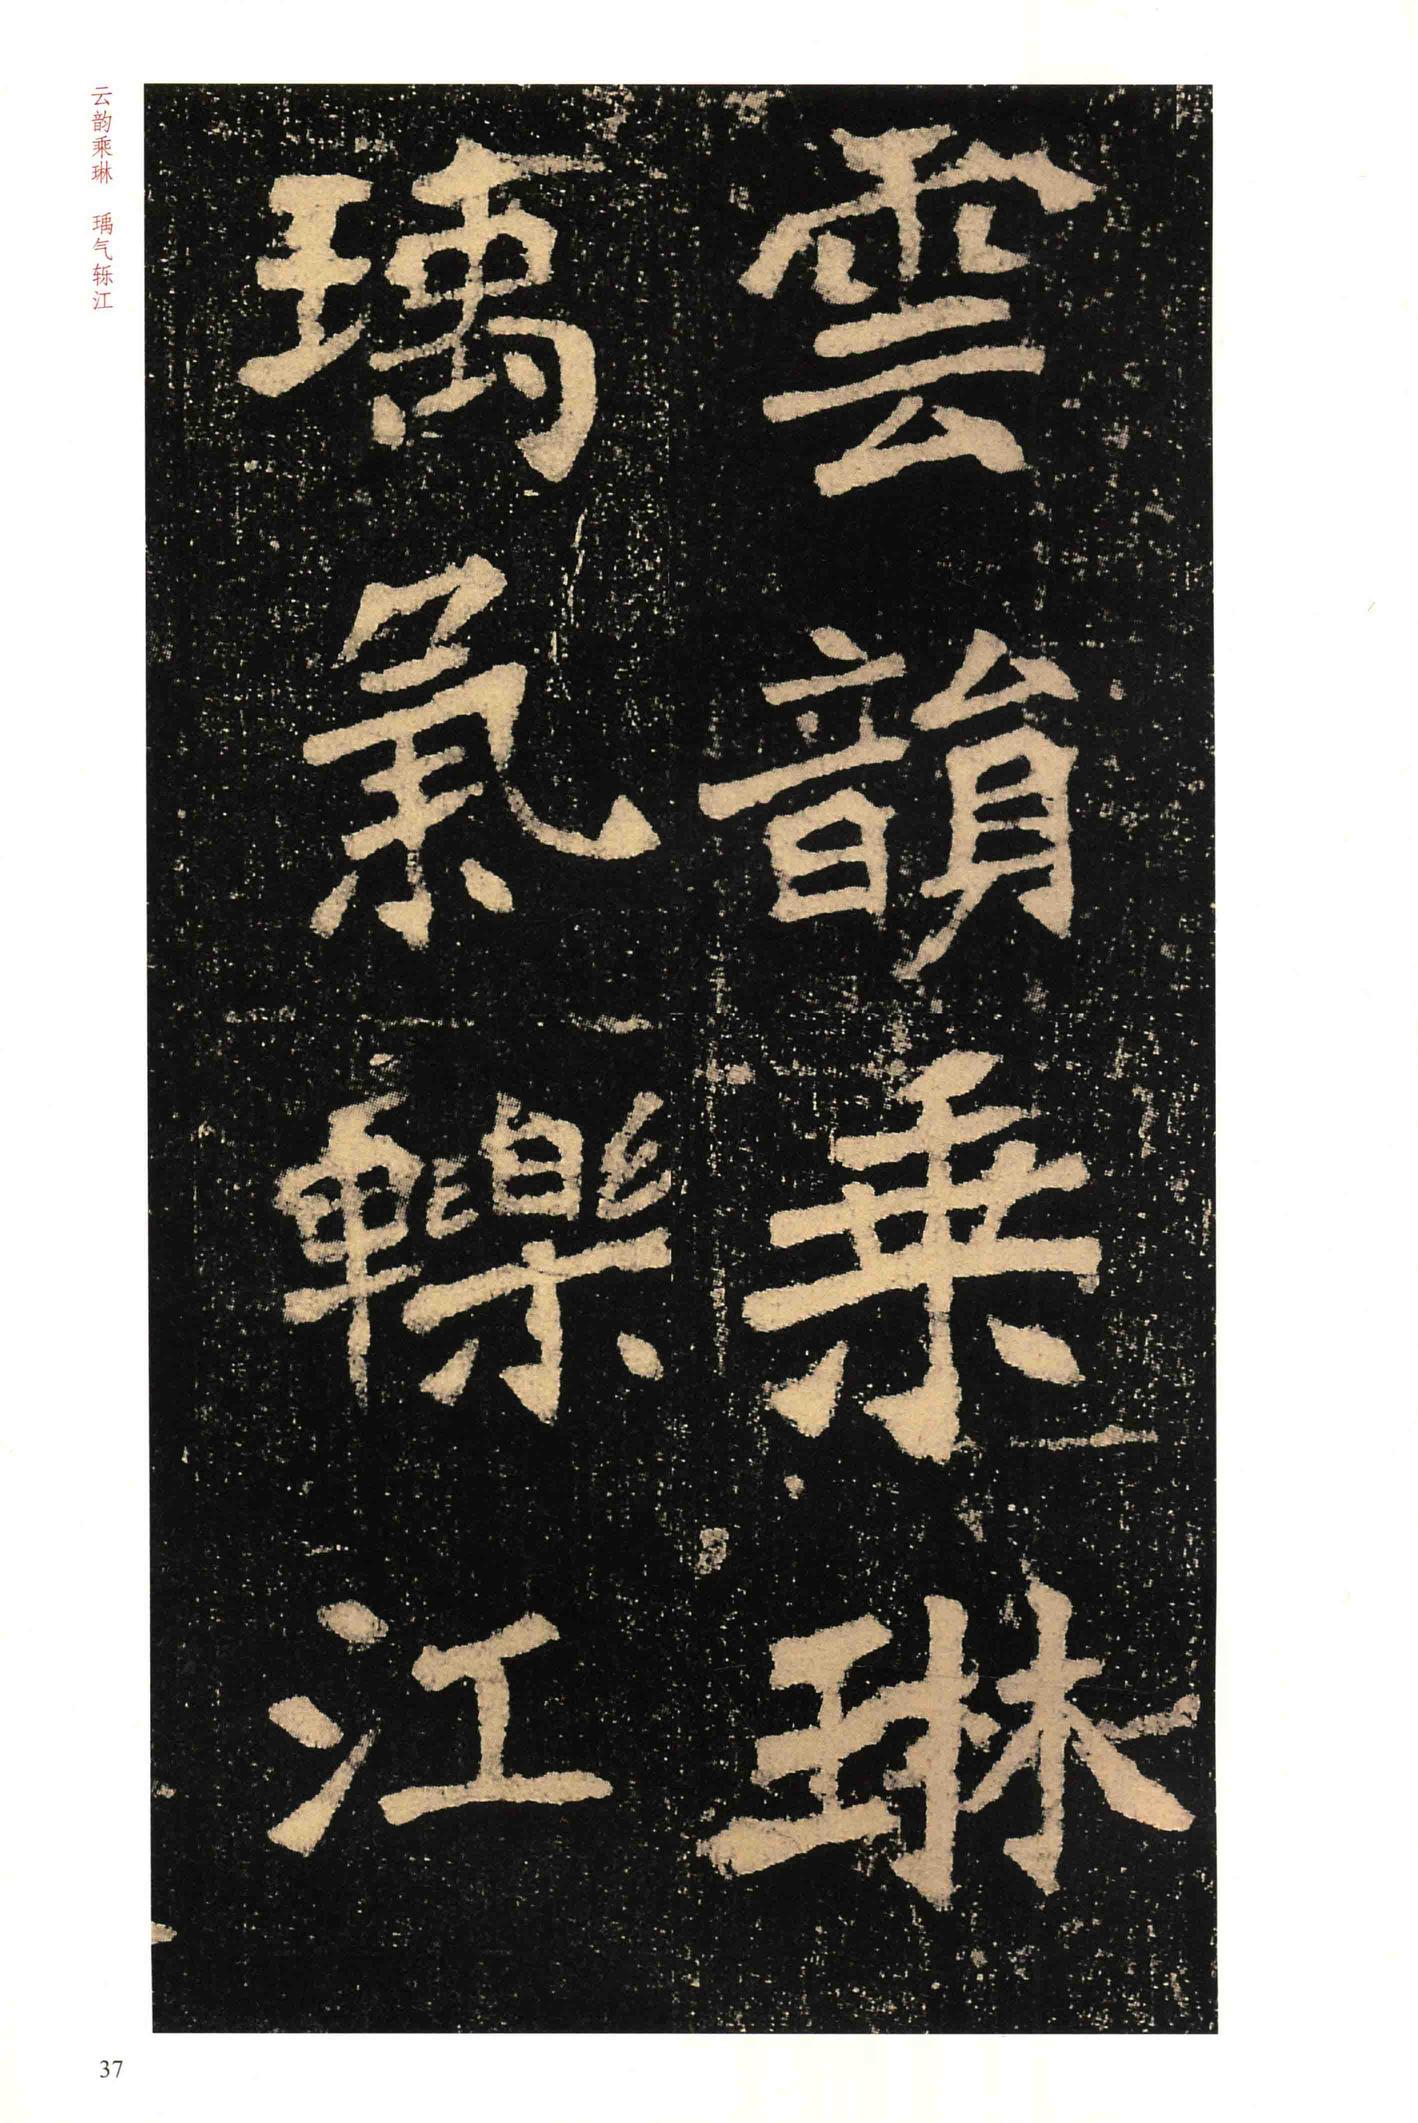 雲韻乘琳
瑀氣轢江
云韵乘琳 瑀气轹江
37